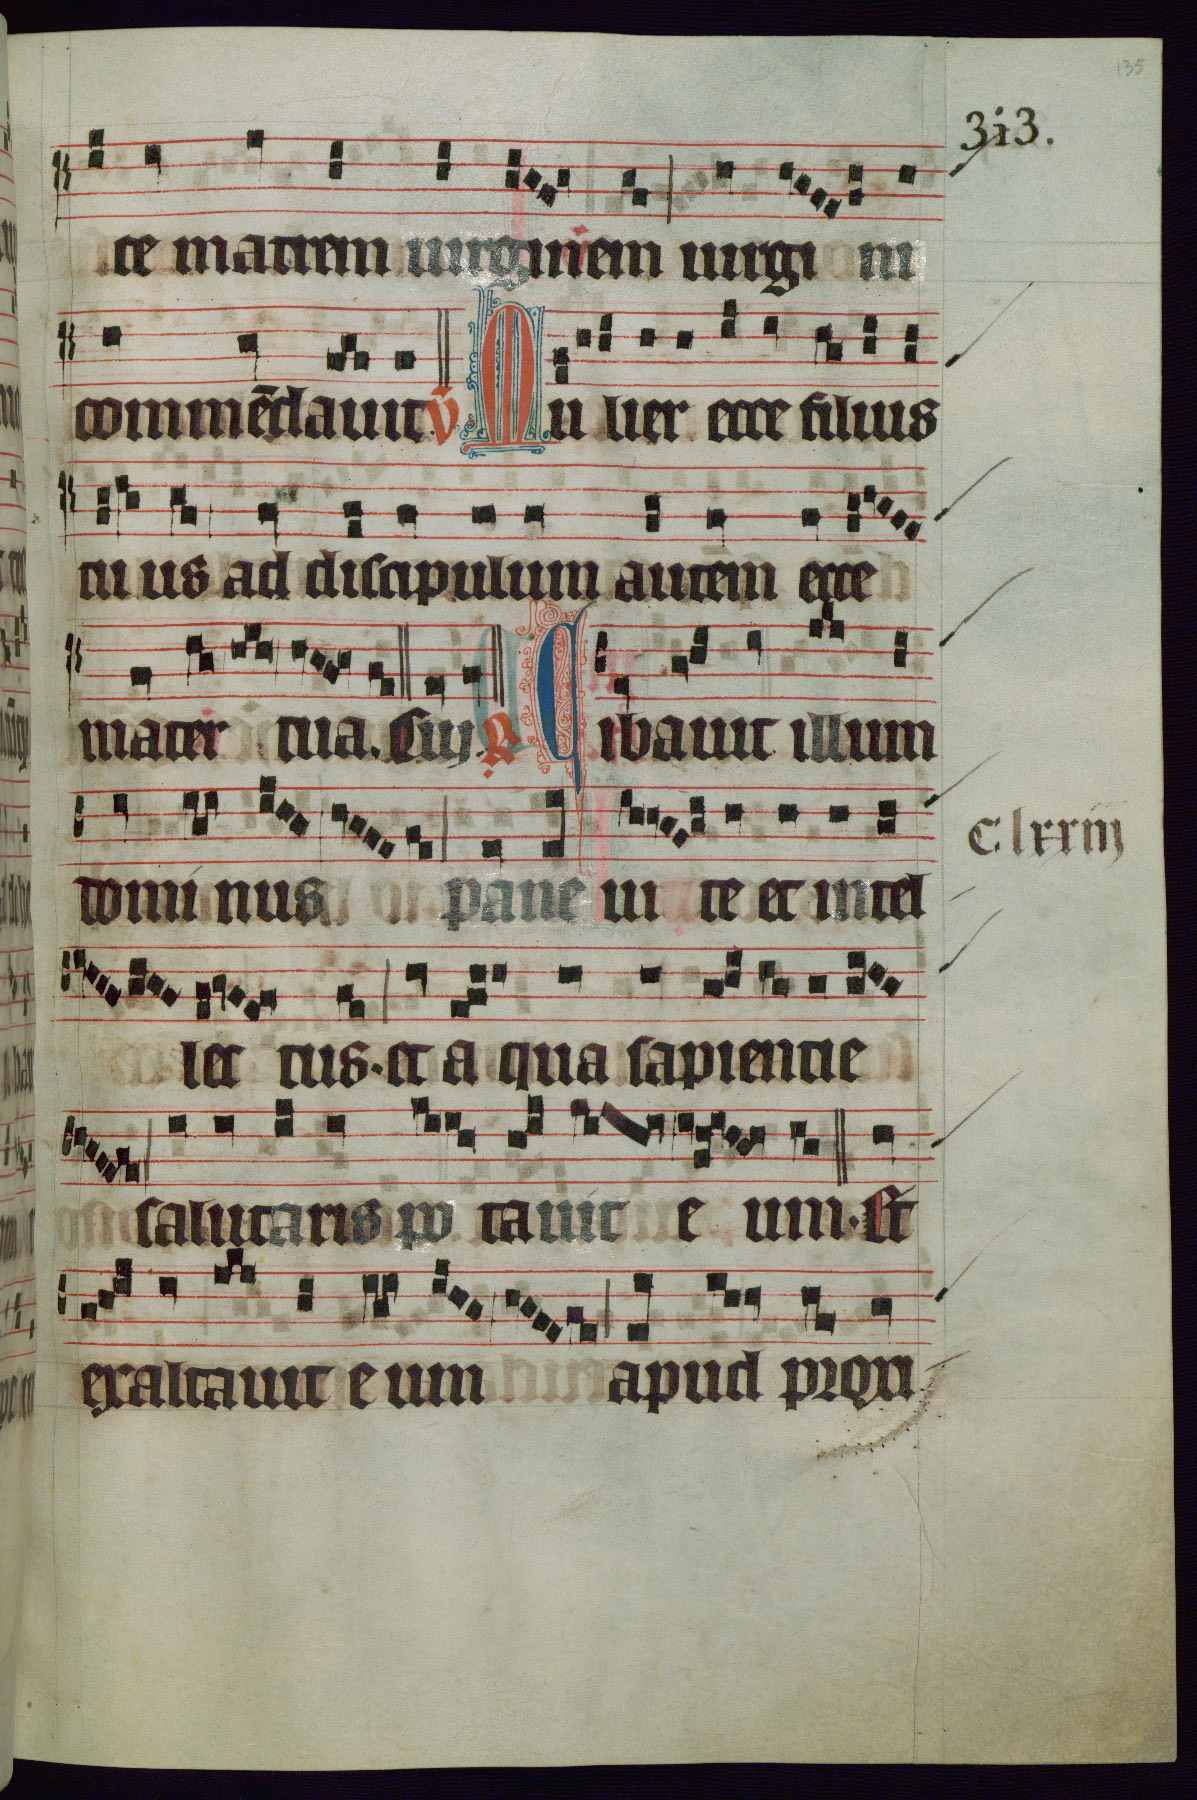 135
313.
te matrem uirginem uirgi ni
commēdauit. V̄ Mu lier ecce filius
tu us ad discipulum autem ecce
mater tua. Cui. R Cibauit illum
domi nus pane ui te et intel
C. lxxiiij
lec tus. et a qua sapientie
salutaris po tauit e um. Et
exaltauit e um apud proxi